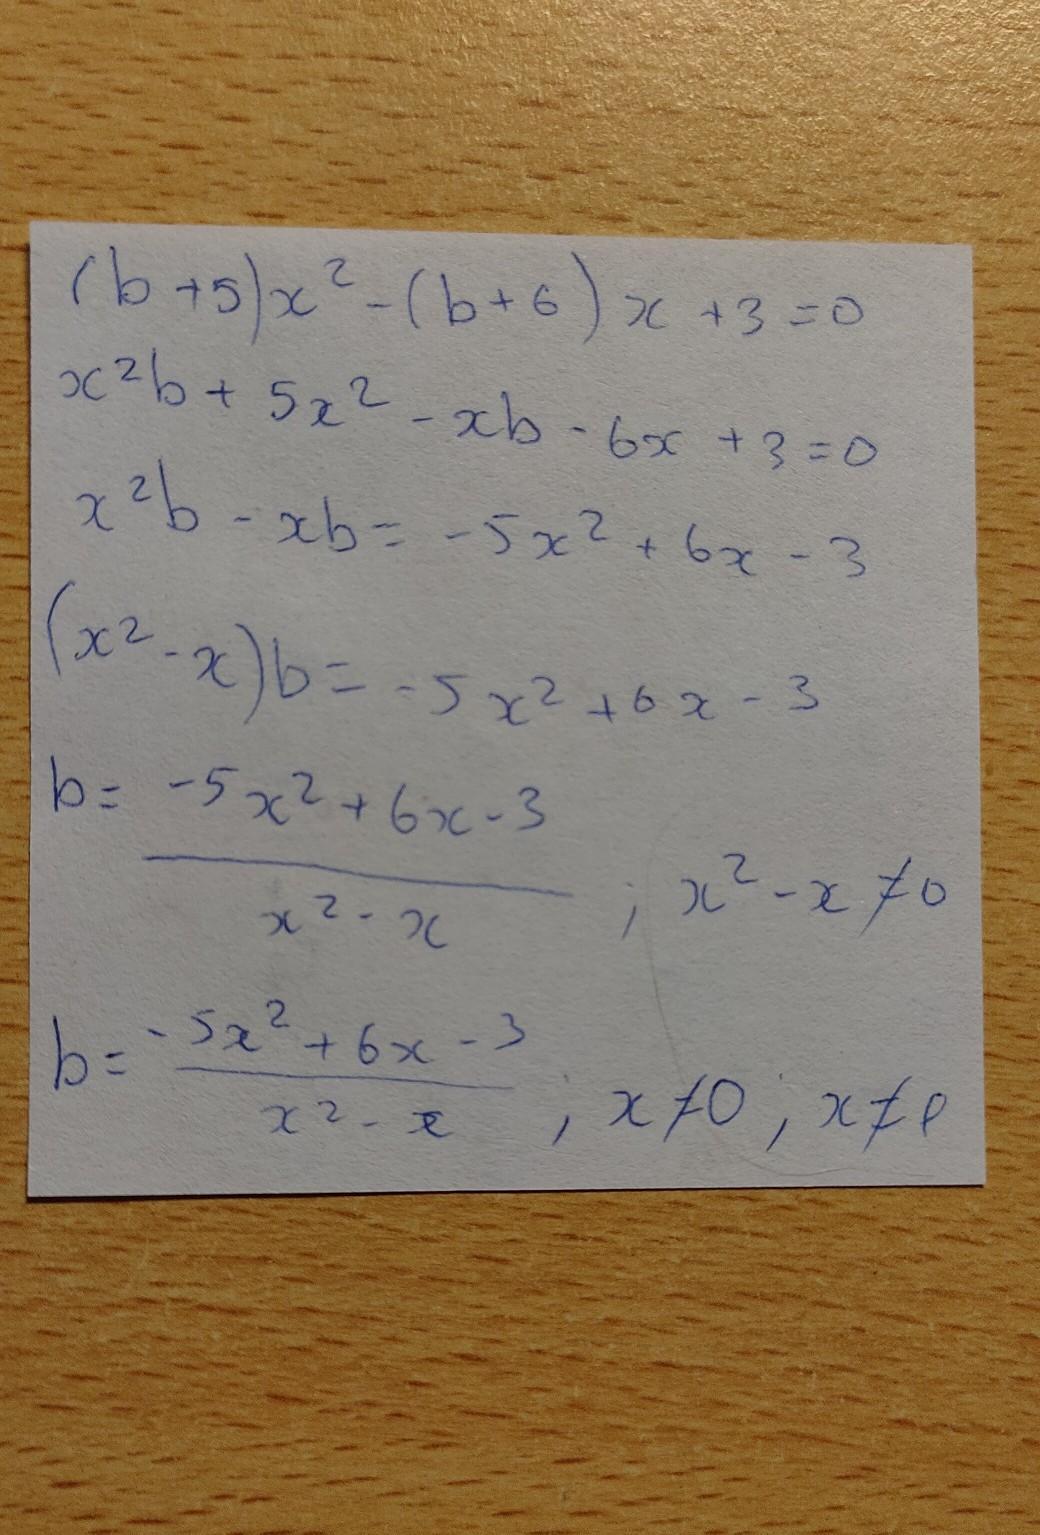 (b+5)x²-(b+6)x+3=0
x²b+5x²-xb-6x+3=0
x²b-xb=-5x²+6x-3
(x²-x)b=-5x²+6x-3
b=\frac{-5x²+6x-3}{x²-x} ; x²-x≠0
b=\frac{-5x²+6x-3}{x²-x} ; x≠0 ; x≠1